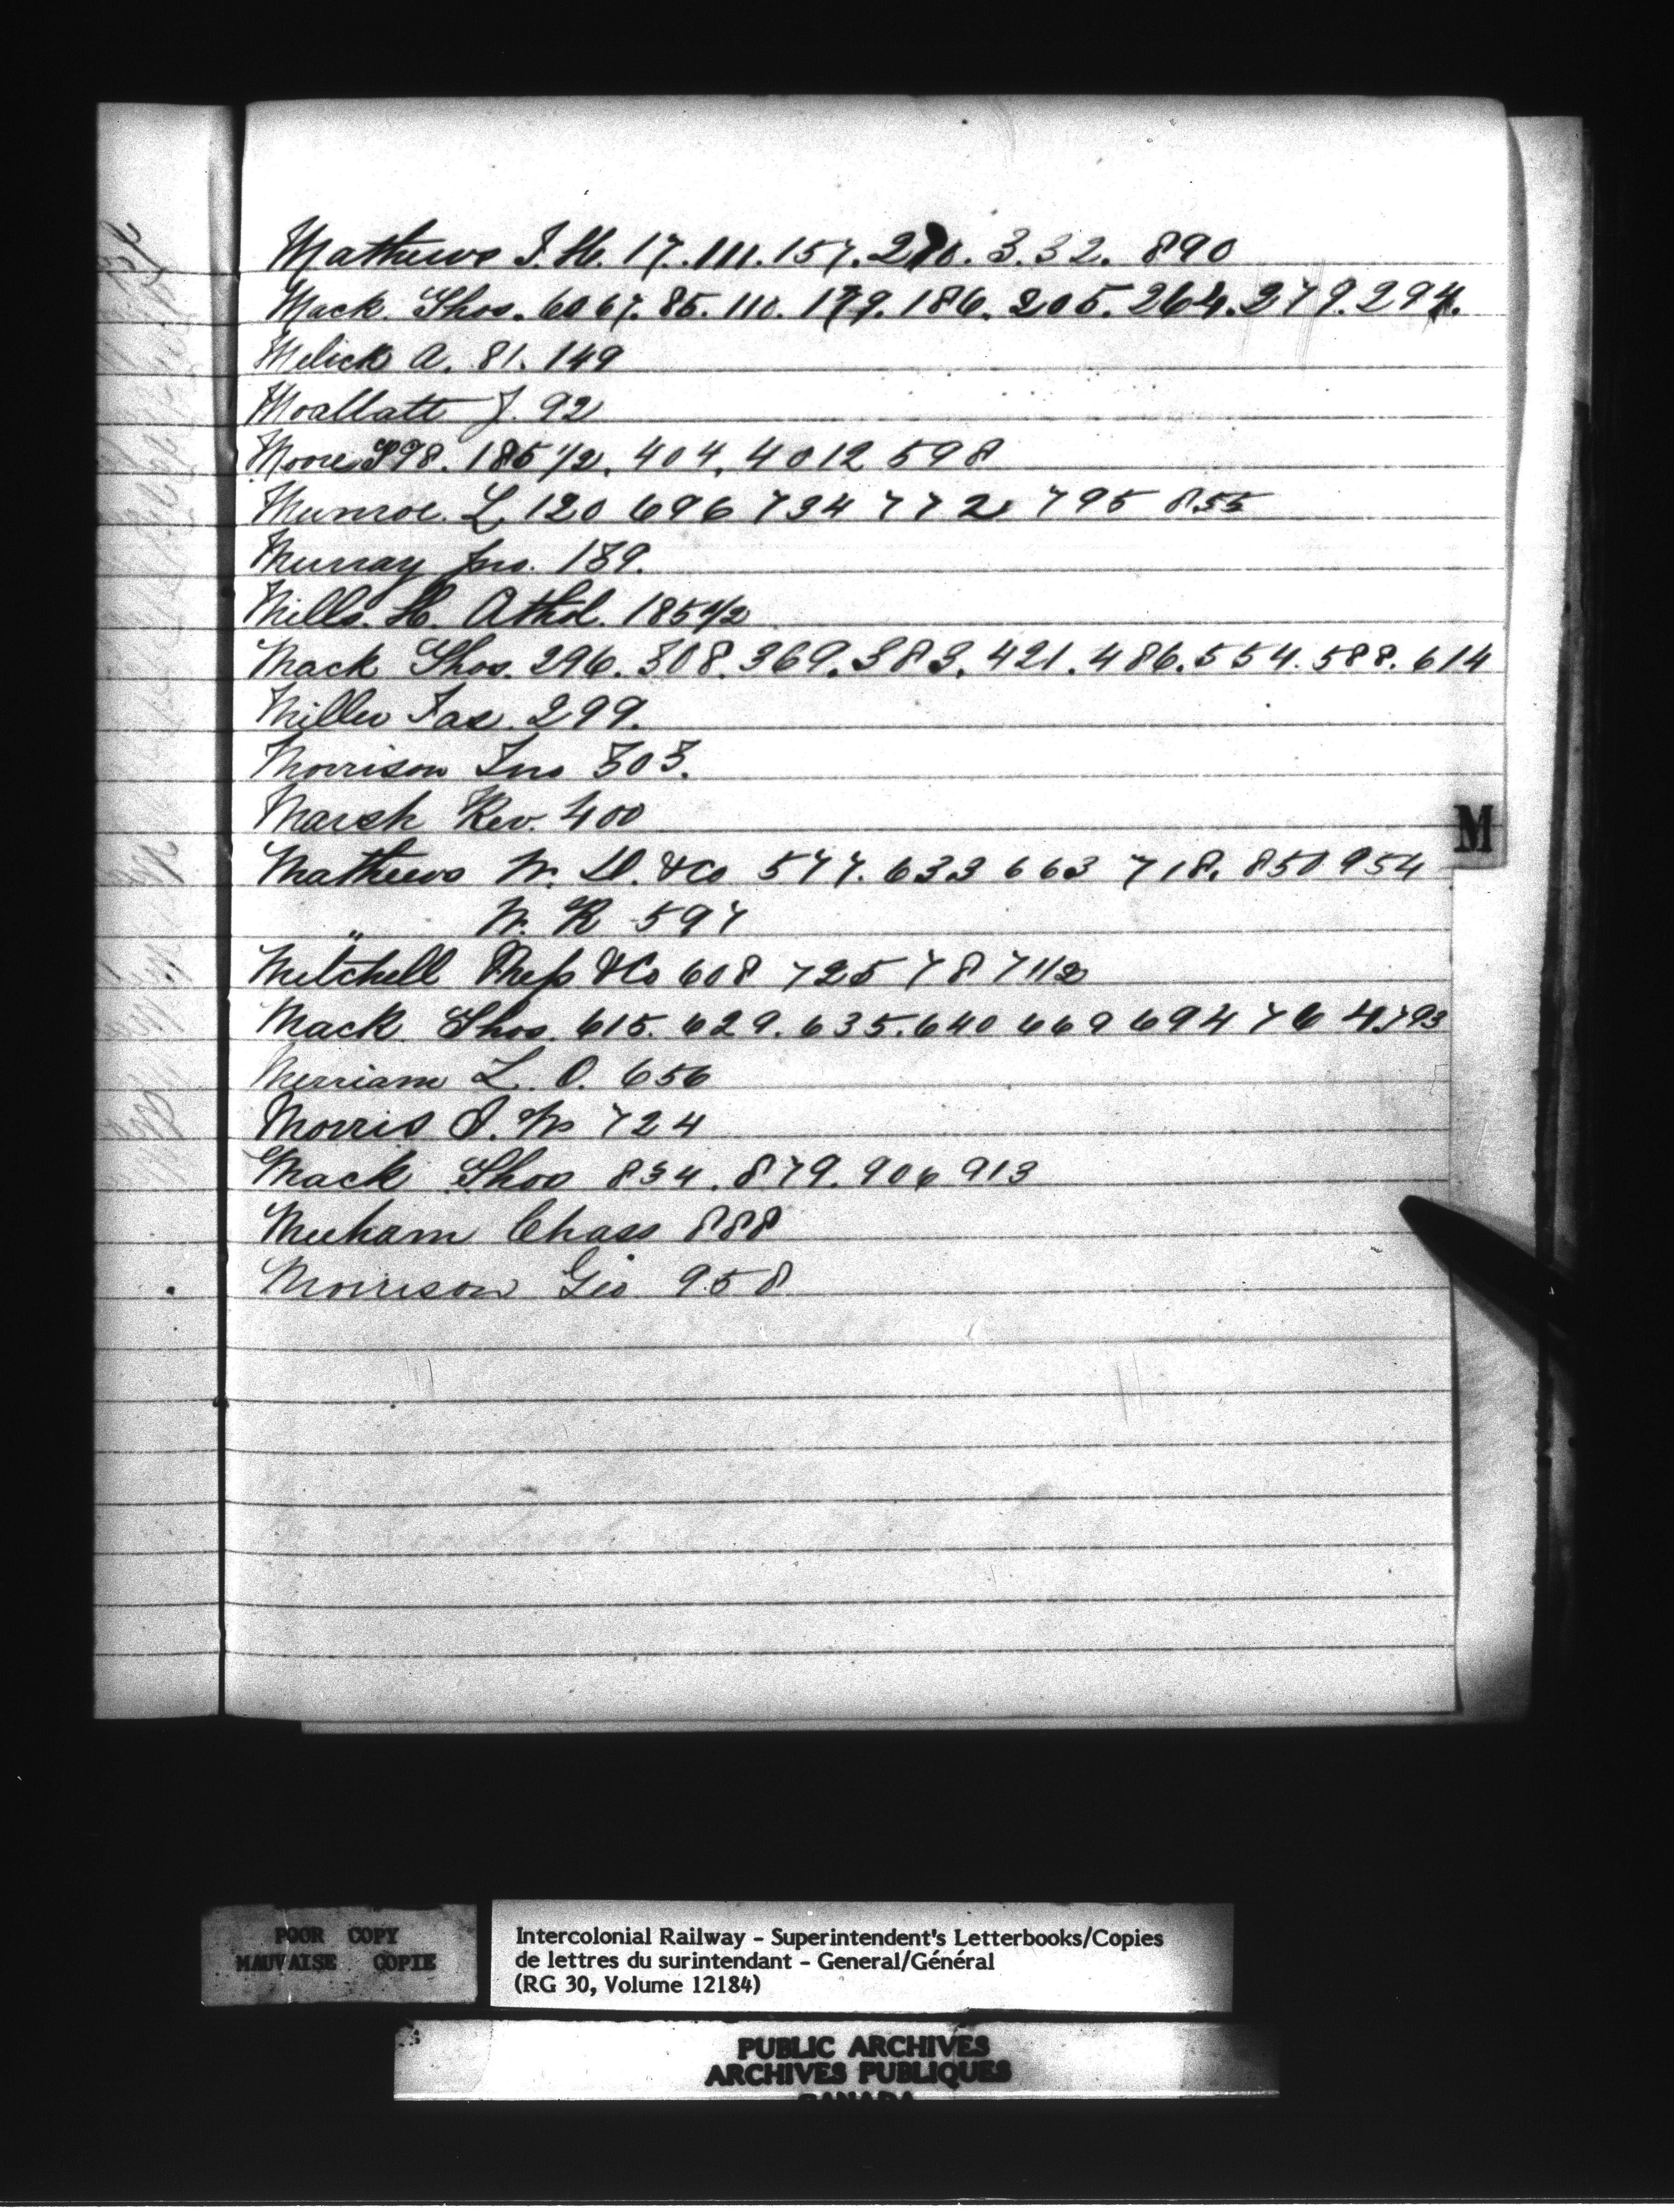 Mathews J. H. 17. 111. 157. 270. 332. 890
Mack Thos. 60 67. 85. 110. 179. 186. 205. 264. 279. 294.
Melick A. 81. 149
Moallatt J. 92
Moore S 98. 185 1/2. 404. 401 2 598
Munroe. L 120 696 734 772 795 855
Murray Jno. 189.
Mills. H. Athol. 185 1/2
Mack Thos. 296. 308. 369. 383. 421. 486. 554. 588. 614
Miller Jas. 299.
Morrison Jno 303.
Marsh Rev. 400
Mathews W. D. & Co 577. 633 663 718. 850 954
" W. R 597
Mitchell & Co 608 725 787 1/2
Mack Thos. 615. 629. 635. 640 669 694 764. 793
Merriam L. O. 656
Morris J. W 724
Mack Thos 834. 879. 906 913
Meeham Chass 888
Morrison Geo 958
M
POOR COPY
MAUVAISE COPIE
Intercolonial Railway - Superintendent's Letterbooks/Copies
de lettres du surintendant - General/Général
(RG 30, Volume 12184)
PUBLIC ARCHIVES
ARCHIVES PUBLIQUES
CANADA